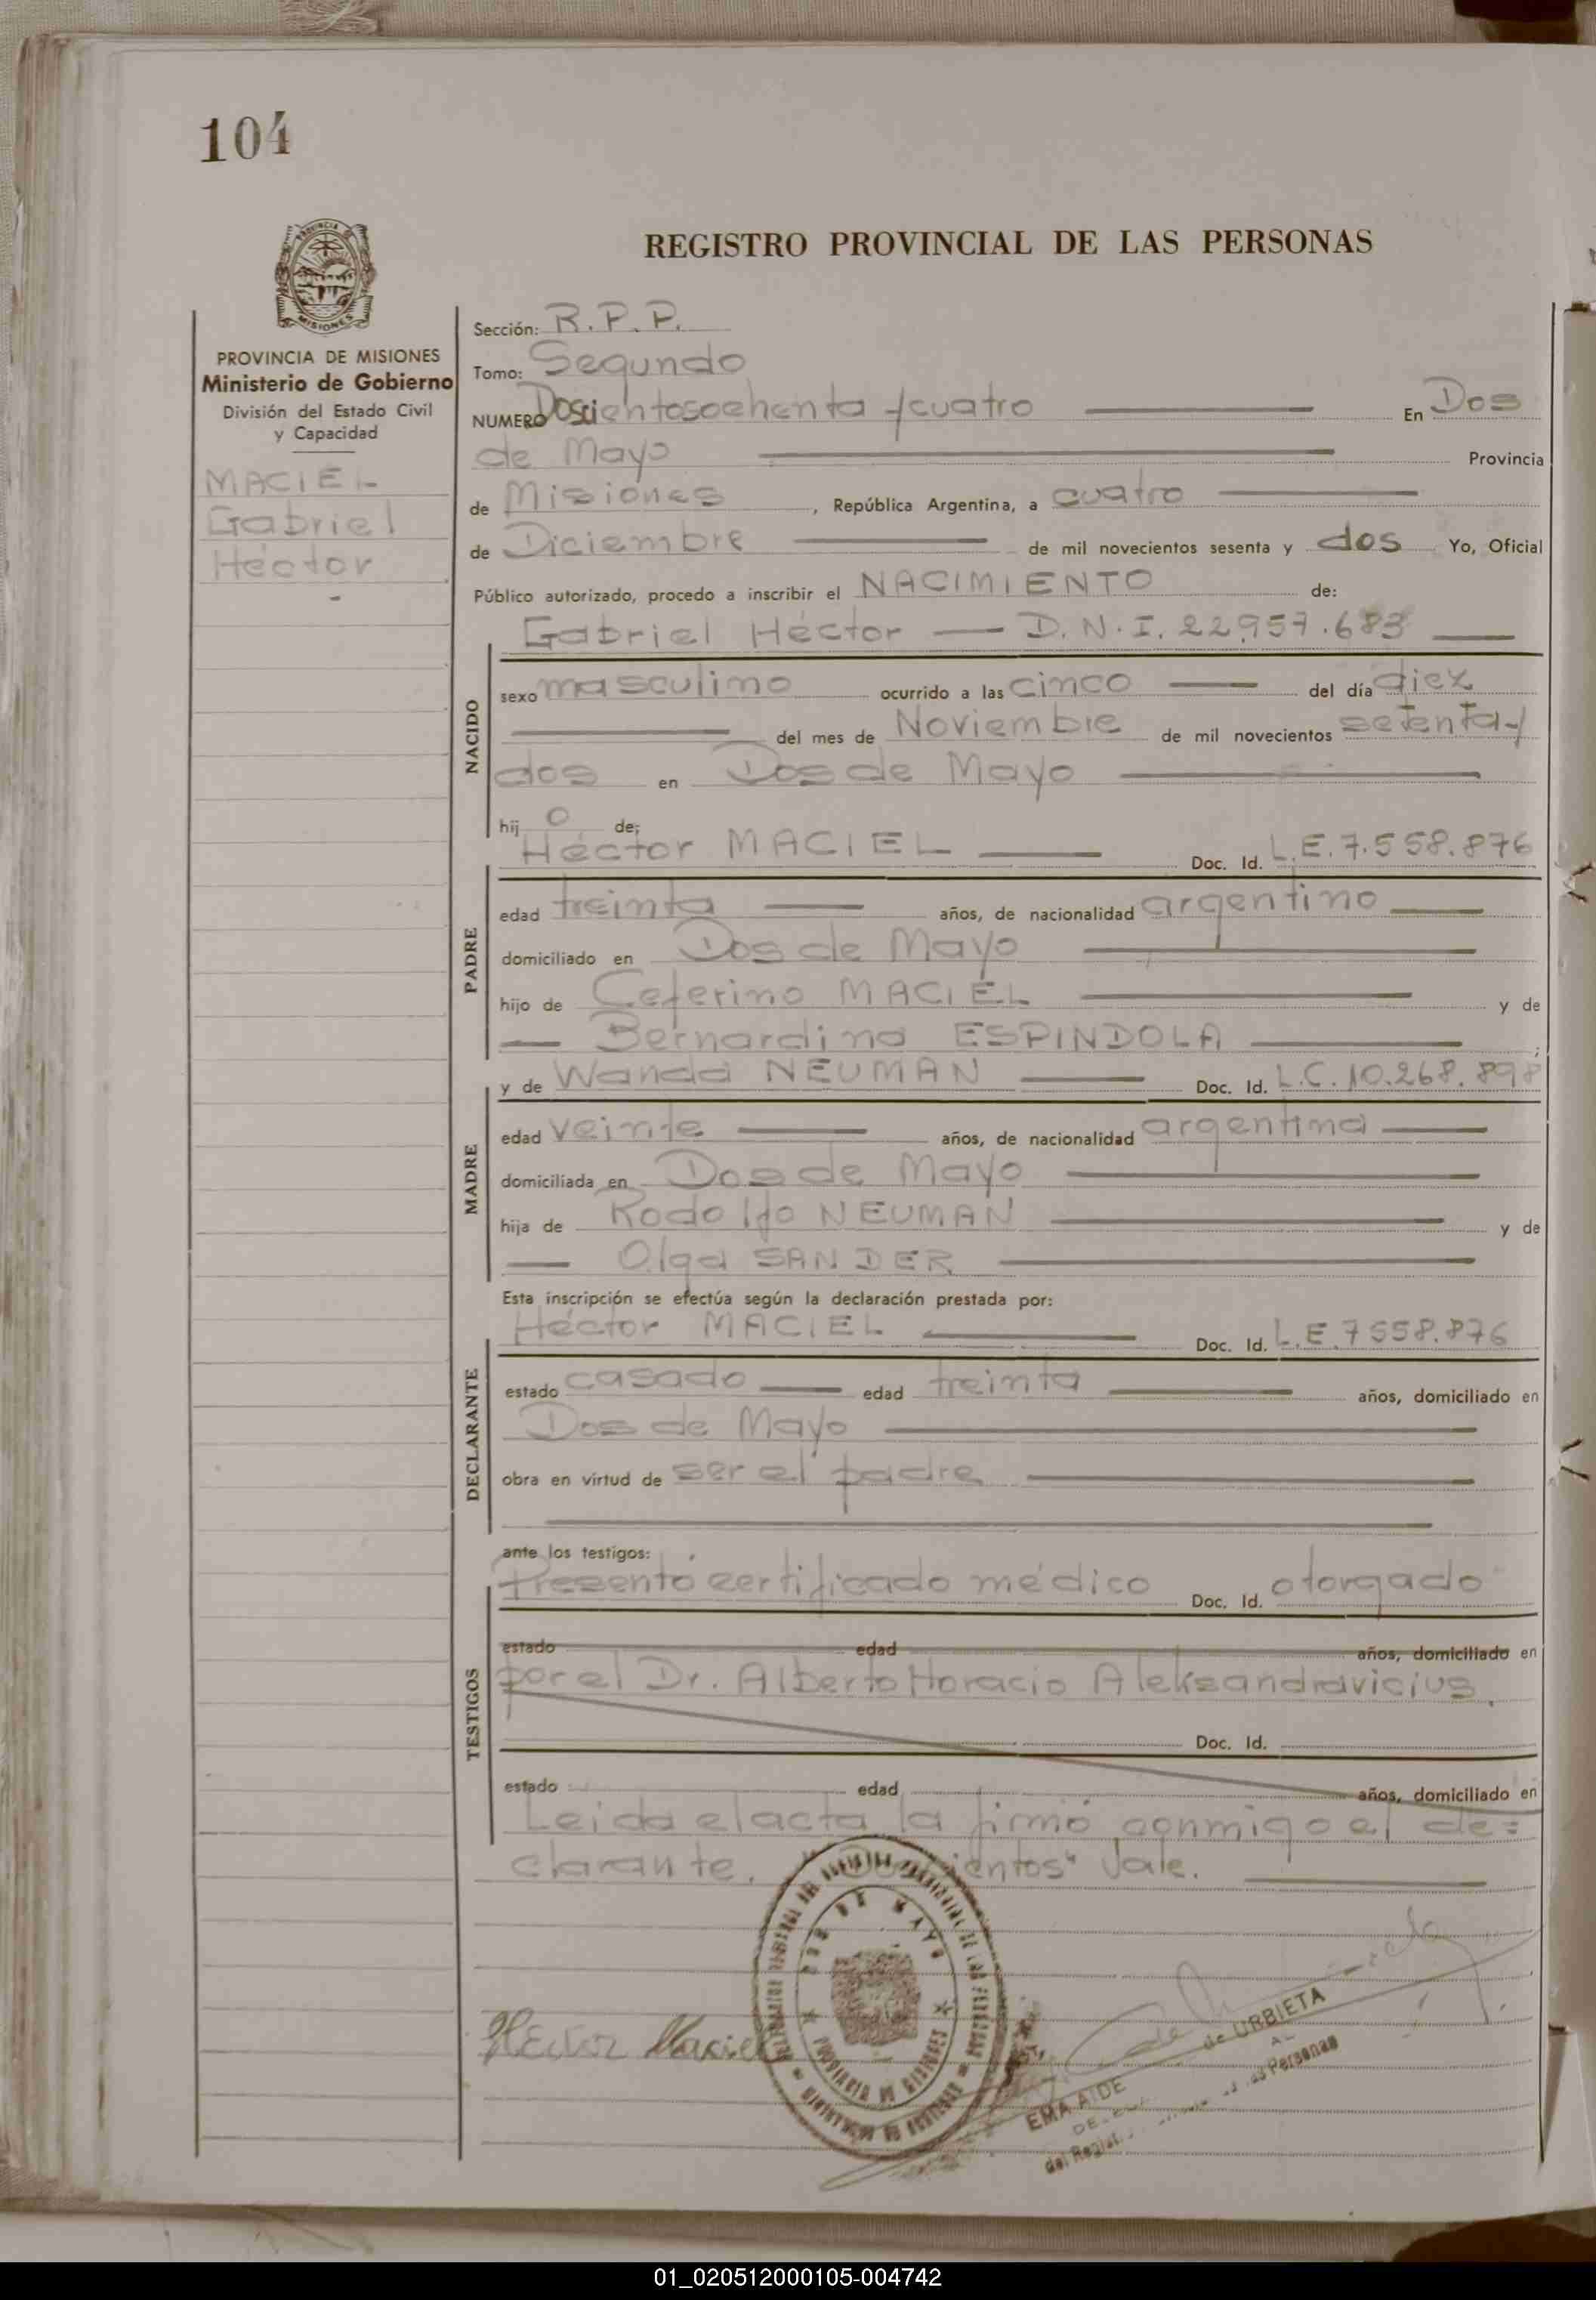 104
REGISTRO PROVINCIAL DE LAS PERSONAS
PROVINCIA DE MISIONES
Ministerio de Gobierno
División del Estado Civil
y Capacidad
MACIEL
Gabriel
Héctor
Sección: R.P.P.
Tomo: Segundo
NUMERO Doscientosochenta y cuatro En Dos
de Mayo Provincia
de Misiones, República Argentina, a cuatro
de Diciembre de mil novecientos sesenta y dos Yo, Oficial
Público autorizado, procedo a inscribir el NACIMIENTO de:
NACIDO
Gabriel Héctor — D.N.I. 22.957.683
sexo masculino ocurrido a las cinco del día diez
del mes de Noviembre de mil novecientos setenta y
dos en Dos de Mayo
hijo de;
PADRE
Héctor MACIEL Doc. Id. L.E. 7.558.876
edad treinta años, de nacionalidad argentino
domiciliado en Dos de Mayo
hijo de Ceferino MACIEL y de
Bernardina ESPINDOLA
MADRE
y de Wanda NEUMAN Doc. Id. L.C. 10.268.898
edad veinte años, de nacionalidad argentina
domiciliada en Dos de Mayo
hija de Rodolfo NEUMAN y de
Olga SANDER
Esta inscripción se efectúa según la declaración prestada por:
DECLARANTE
Héctor MACIEL Doc. Id. L.E. 7558.876
estado casado edad treinta años, domiciliado en
Dos de Mayo
obra en virtud de ser el padre
TESTIGOS
ante los testigos:
Presentó certificado médico Doc. Id. otorgado
estado edad años, domiciliado en
por el Dr. Alberto Horacio Aleksandravicius.
Doc. Id.
estado edad años, domiciliado en
Leida el acta la firmó conmigo el de=
clarante. ientos" Vale.
DOS DE MAYO
PROVINCIA DE MISIONES
Héctor Maciel
EMA AIDE de URBIETA
las Personas
01_020512000105-004742